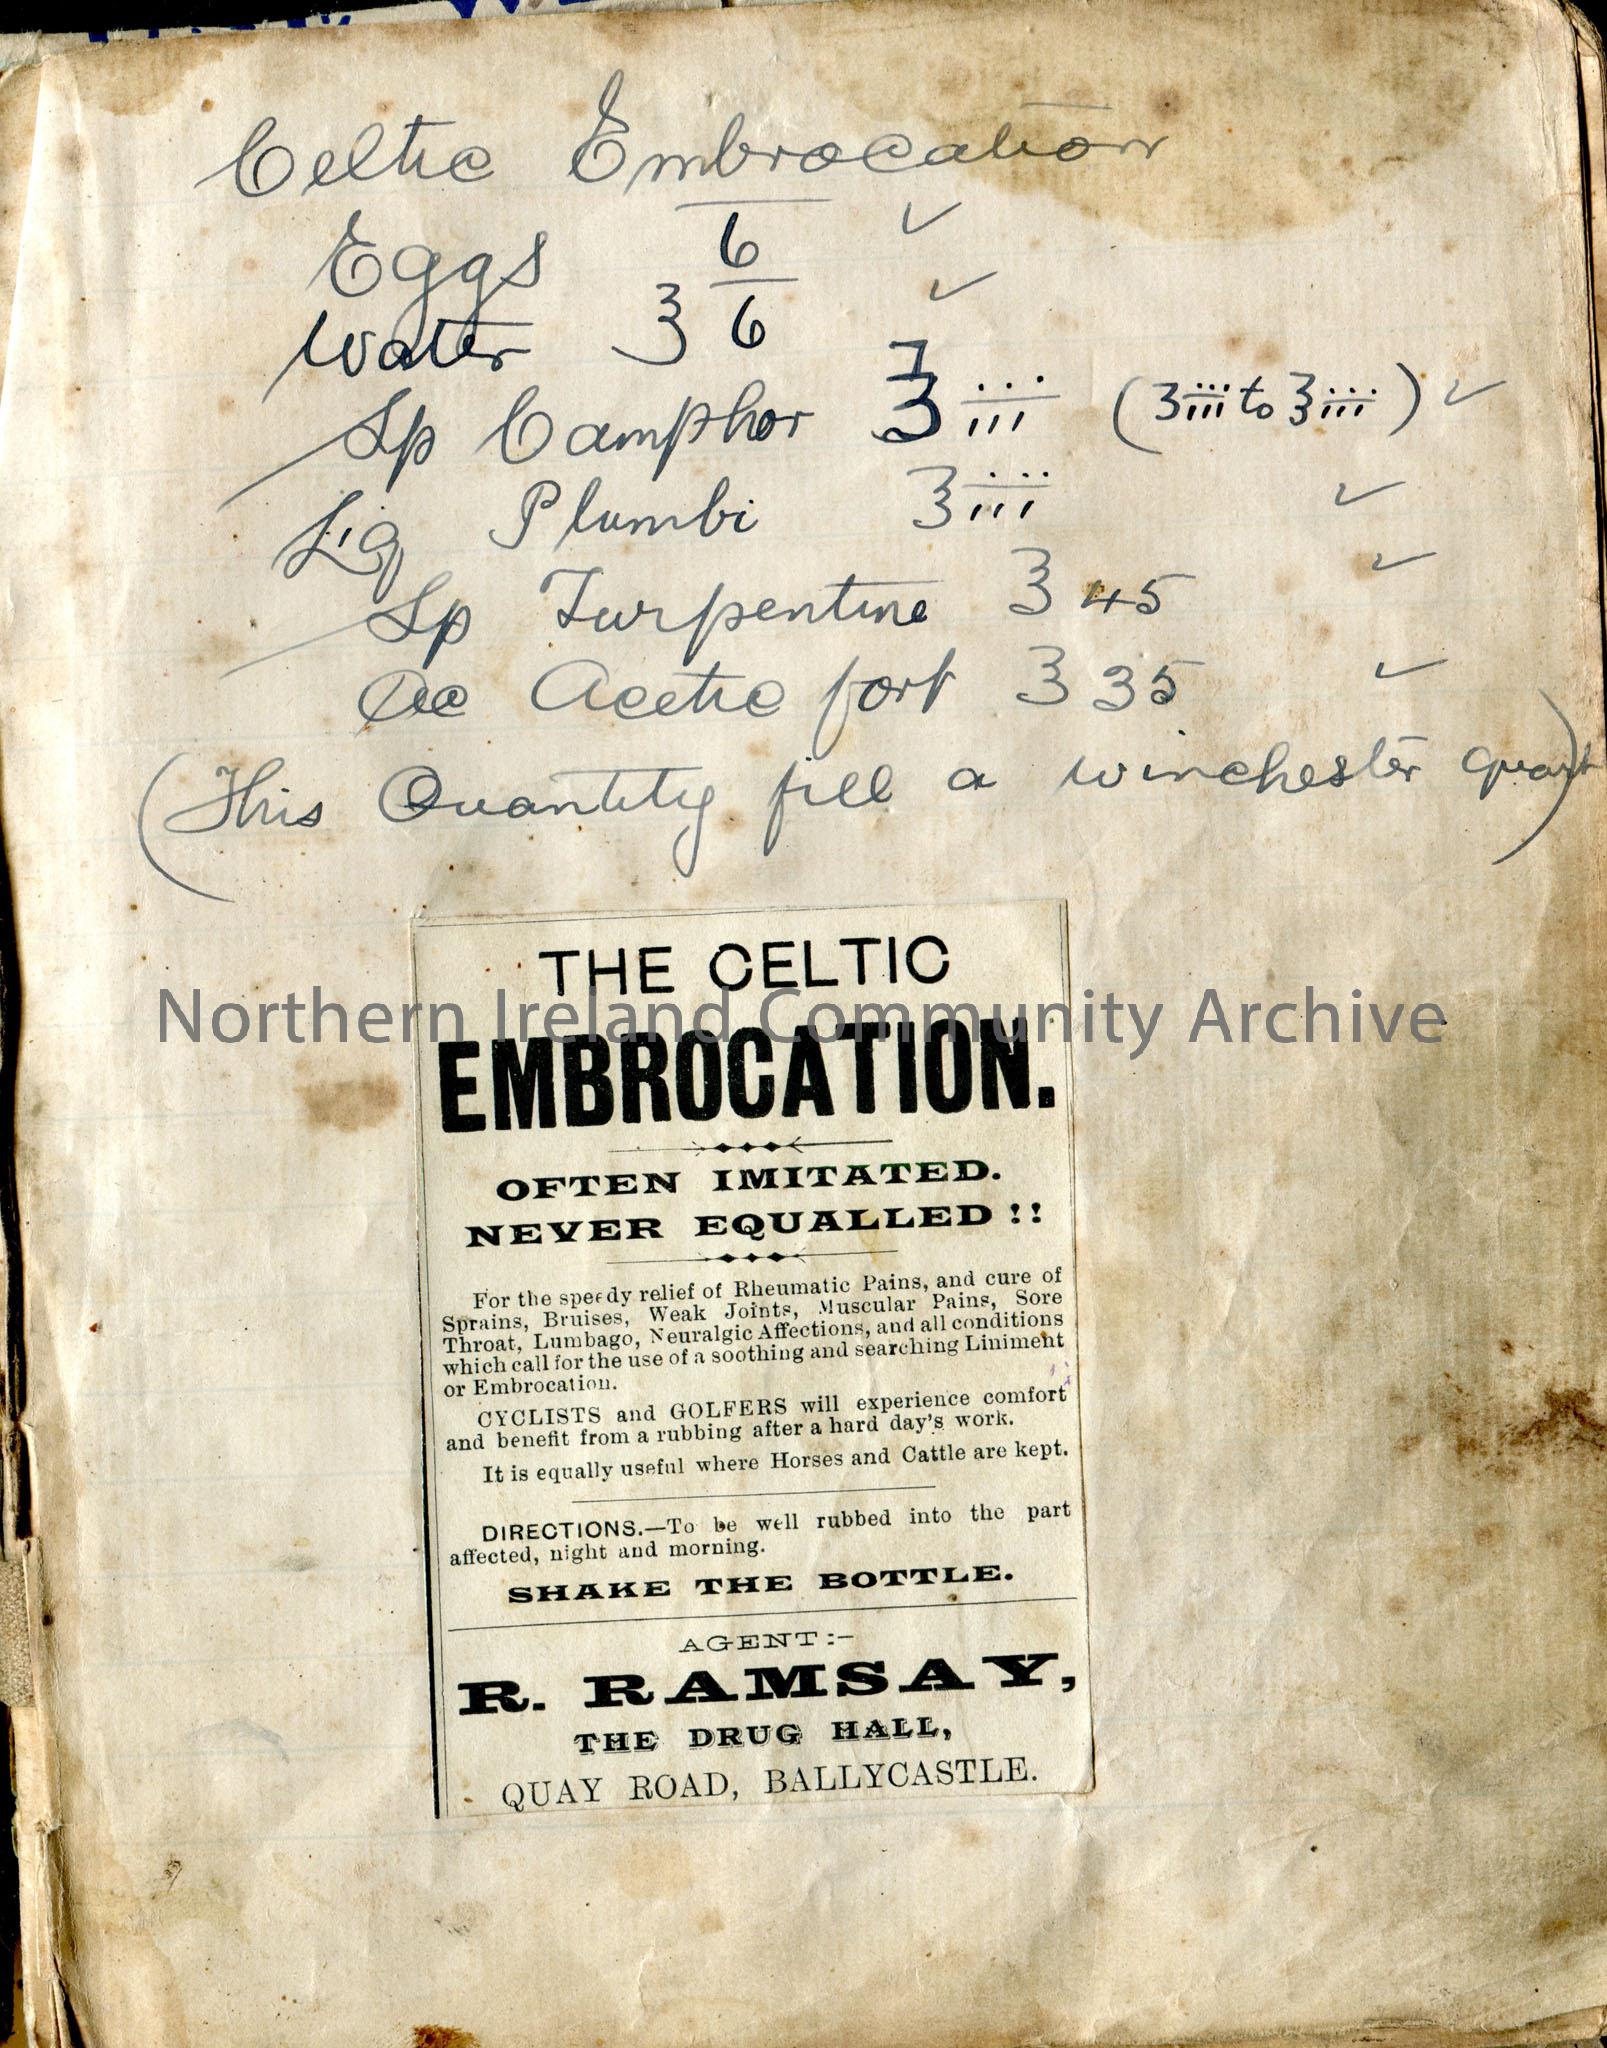 Celtic Embrocation
Eggs 6 ✓
Water ℥ 6 ✓
Sp Camphor ℥ iii (ʒiii to ℥iii) ✓
Liq Plumbi ℥iii ✓
Sp Turpentine ℥ 45 ✓
Ac Acetic fort ℥ 35 ✓
(This Quantity fill a winchester quart)
THE CELTIC
Northern Ireland Community Archive
EMBROCATION.
OFTEN IMITATED.
NEVER EQUALLED !!
For the speedy relief of Rheumatic Pains, and cure of
Sprains, Bruises, Weak Joints, Muscular Pains, Sore
Throat, Lumbago, Neuralgic Affections, and all conditions
which call for the use of a soothing and searching Liniment
or Embrocation.
CYCLISTS and GOLFERS will experience comfort
and benefit from a rubbing after a hard day's work.
It is equally useful where Horses and Cattle are kept.
DIRECTIONS.—To be well rubbed into the part
affected, night and morning.
SHAKE THE BOTTLE.
AGENT:-
R. RAMSAY,
THE DRUG HALL,
QUAY ROAD, BALLYCASTLE.